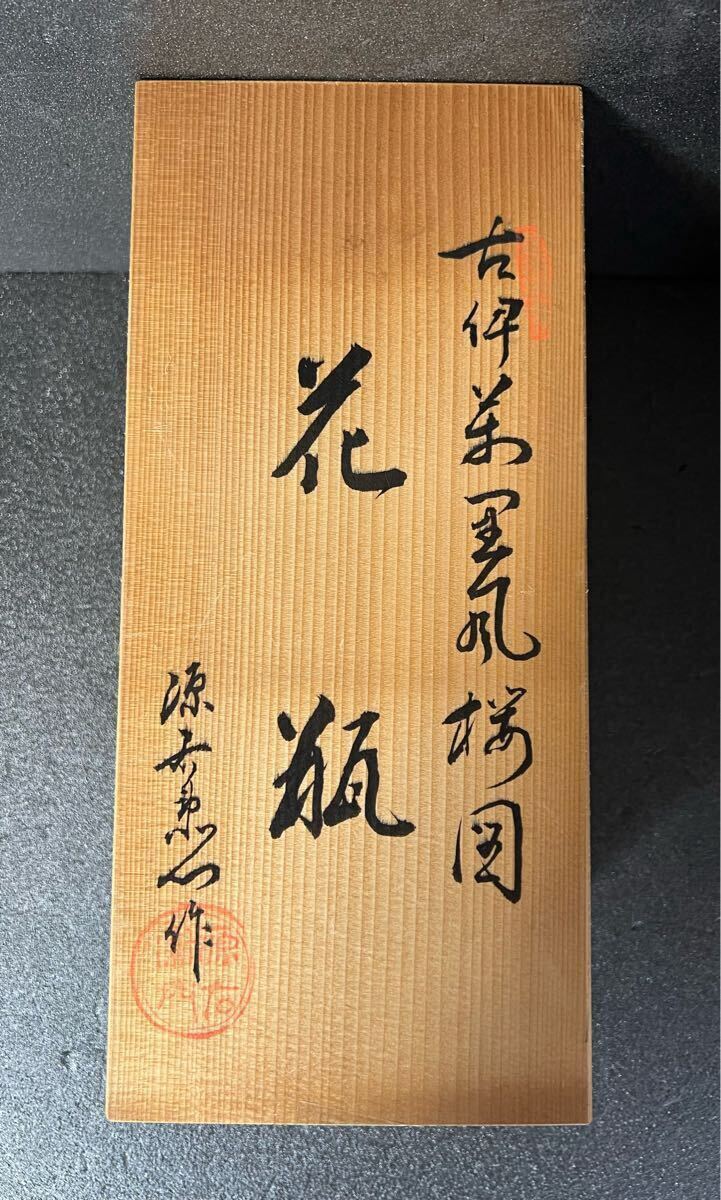 古伊万里風桜図
花瓶
源右衛門作